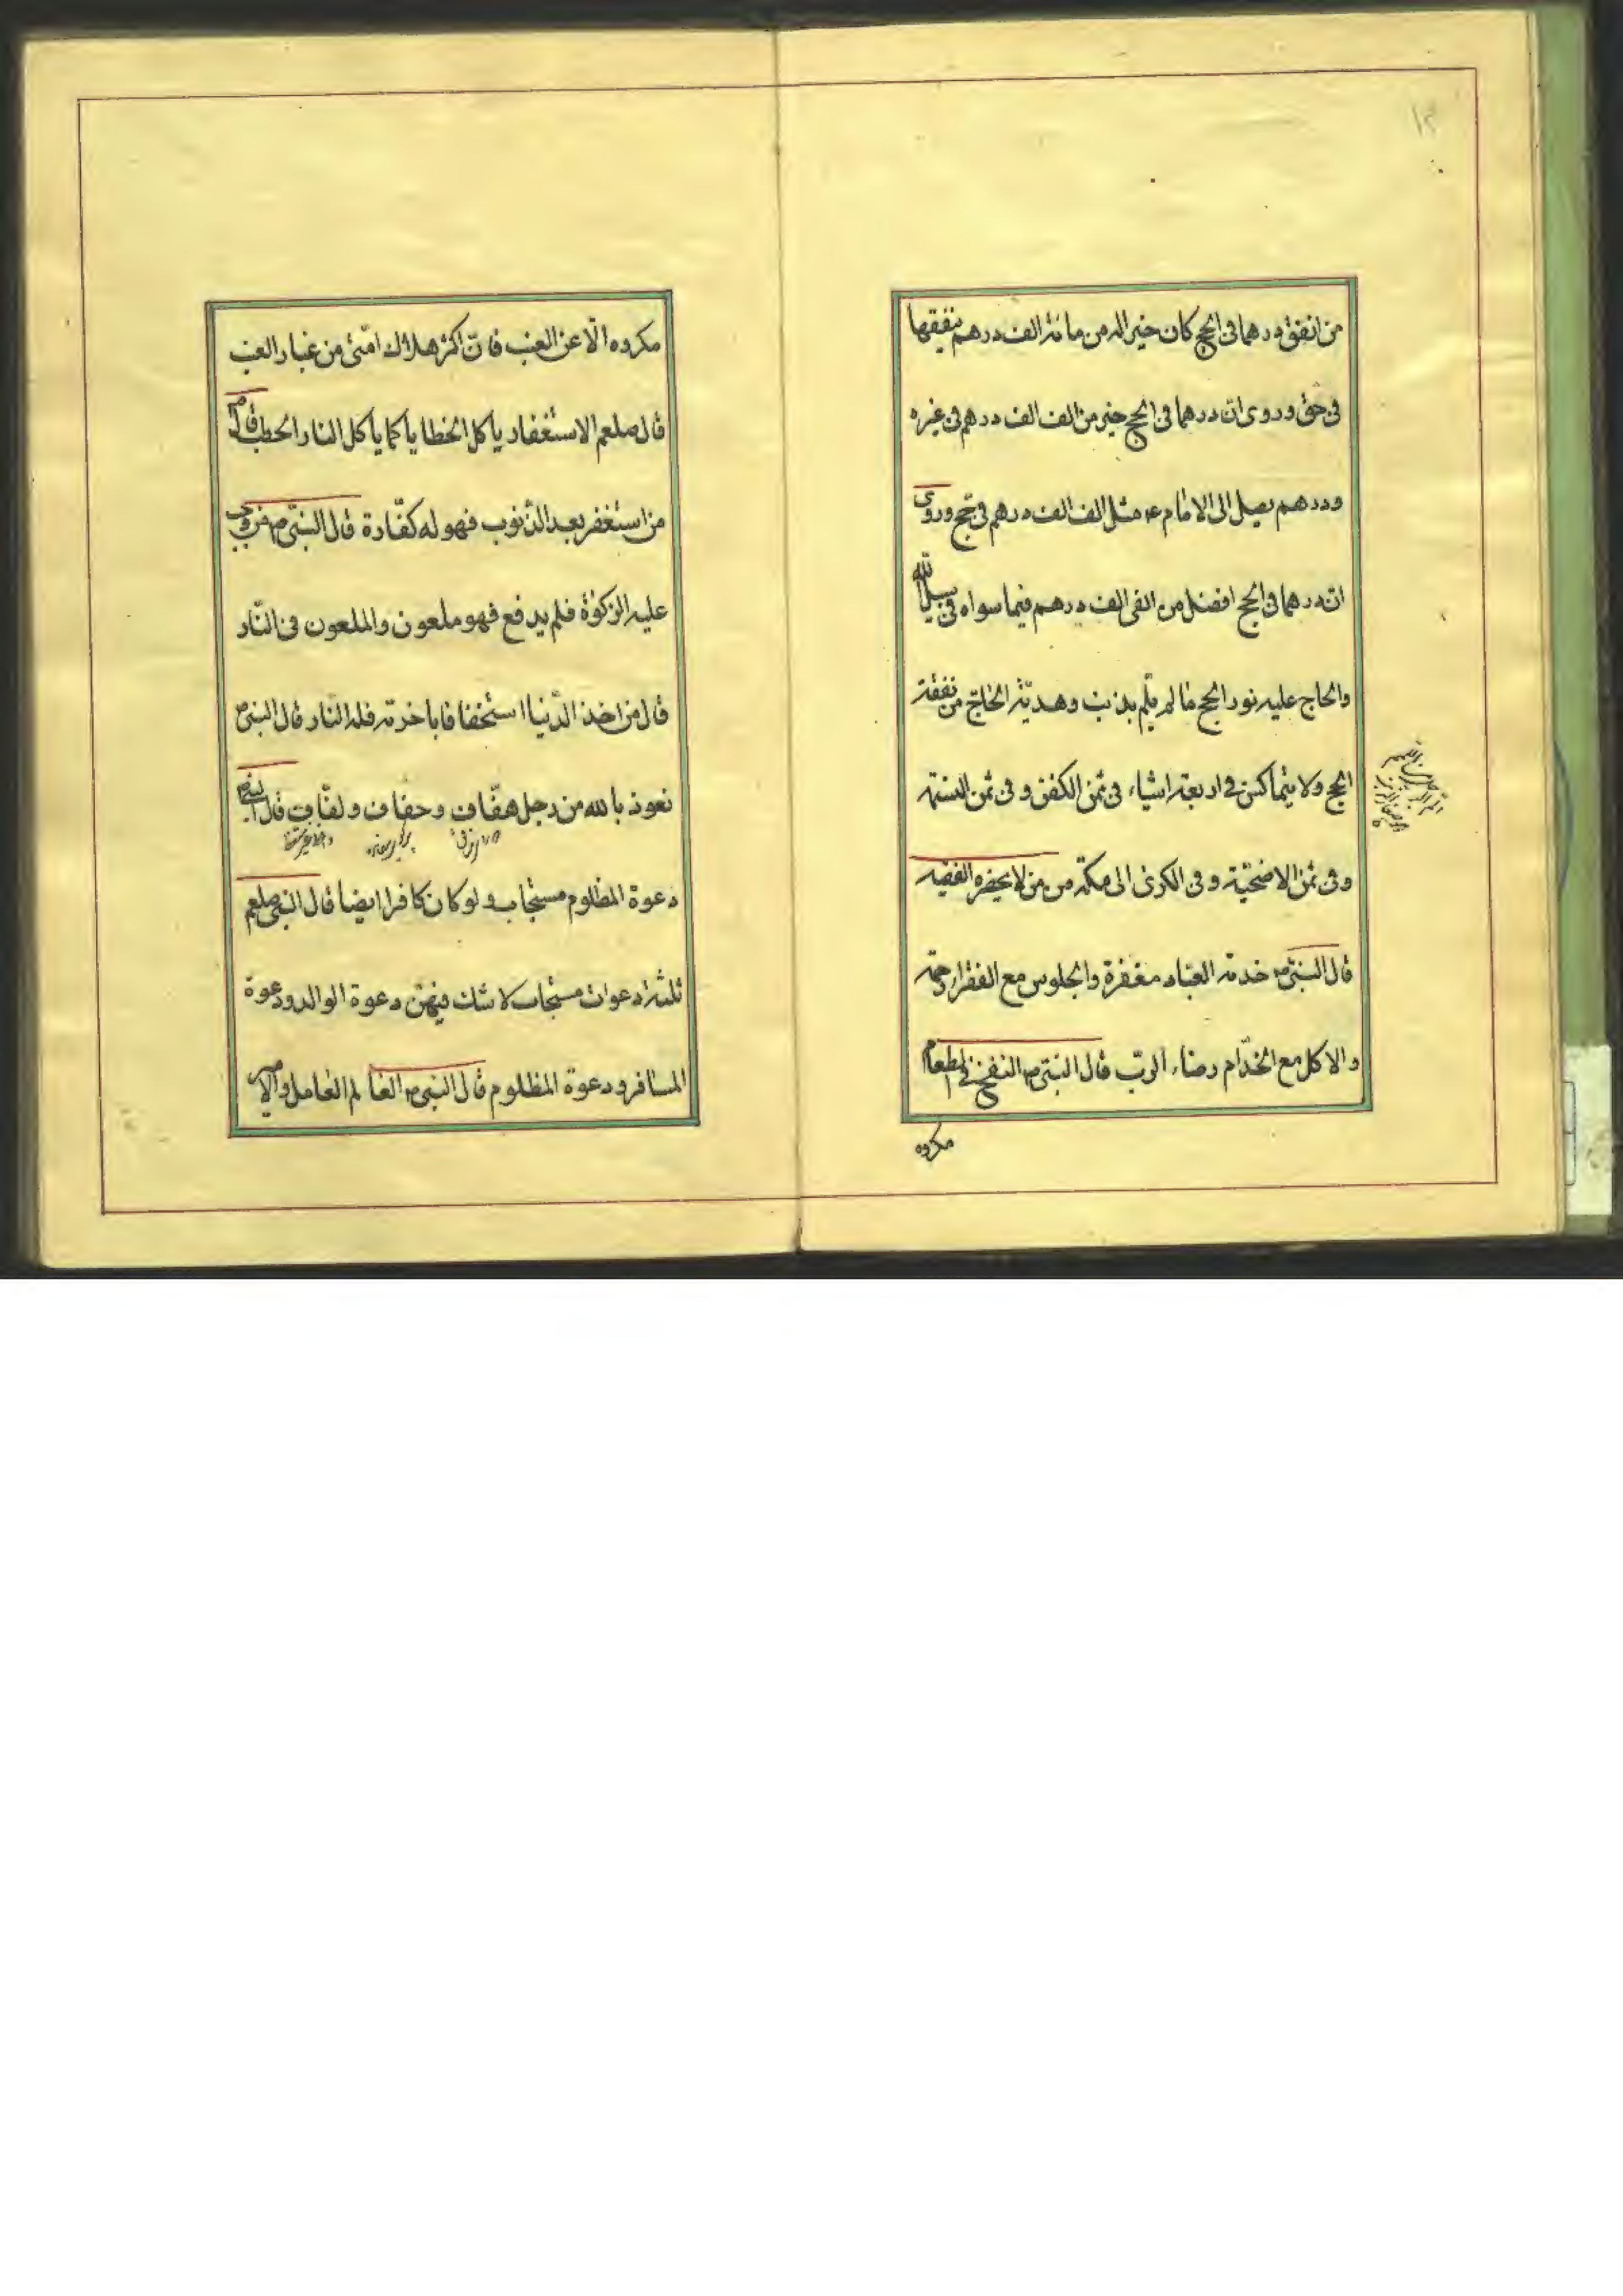 ١٢
من انفق درهما فی الحج کان خیرا له من مائة الف درهم ینفقها
فی حق و روی ان درهما فی الحج خیر من الف الف درهم فی غیره
و درهم یصل الی الامام ع مثل الف الف درهم فی حج و روی
ان درهما فی الحج افضل من الفی الف درهم فیما سواه فی سبیل الله
والحاج علیه نور الحج ما لم یلم بذنب و هدیة الحاج من نفقة
الحج ولا یتماکس فی اربعة اشیاء فی ثمن الکفن و فی ثمن النسمة
و فی ثمن الاضحیّة و فی الکری الی مکة من من لا یحضره الفقیه
قال النبی ص خدمة العباد مغفرة والجلوس مع الفقراء رحمة
والاکل مع الخدّام رضاء الربّ قال النبی ص النفخ فی الطعام
مکروه
مکروه الّا عن العنب فانّ اکثر هلاک امّتی من غبار العنب
قال صلعم الاستغفار یاکل الخطایا کما یاکل النار الحطب قال ص
من استغفر بعد الذّنوب فهو له کفّارة قال النبیّ ص من وجب
علیه الزکوة فلم یدفع فهو ملعون والملعون فی النّار
قال من اخذ الدّنیا استخفافا باخرته فله النّار قال النبی ص
نعوذ بالله من رجل هفّاف و حفاف و لفّاف قال النبی ص
دعوة المظلوم مستجاب و لو کان کافرا ایضا قال النبی صلعم
ثلثة دعوات مستجاب لا شک فیهنّ دعوة الوالد و دعوة
المسافر و دعوة المظلوم قال النبی ص العالم العامل و الامیر